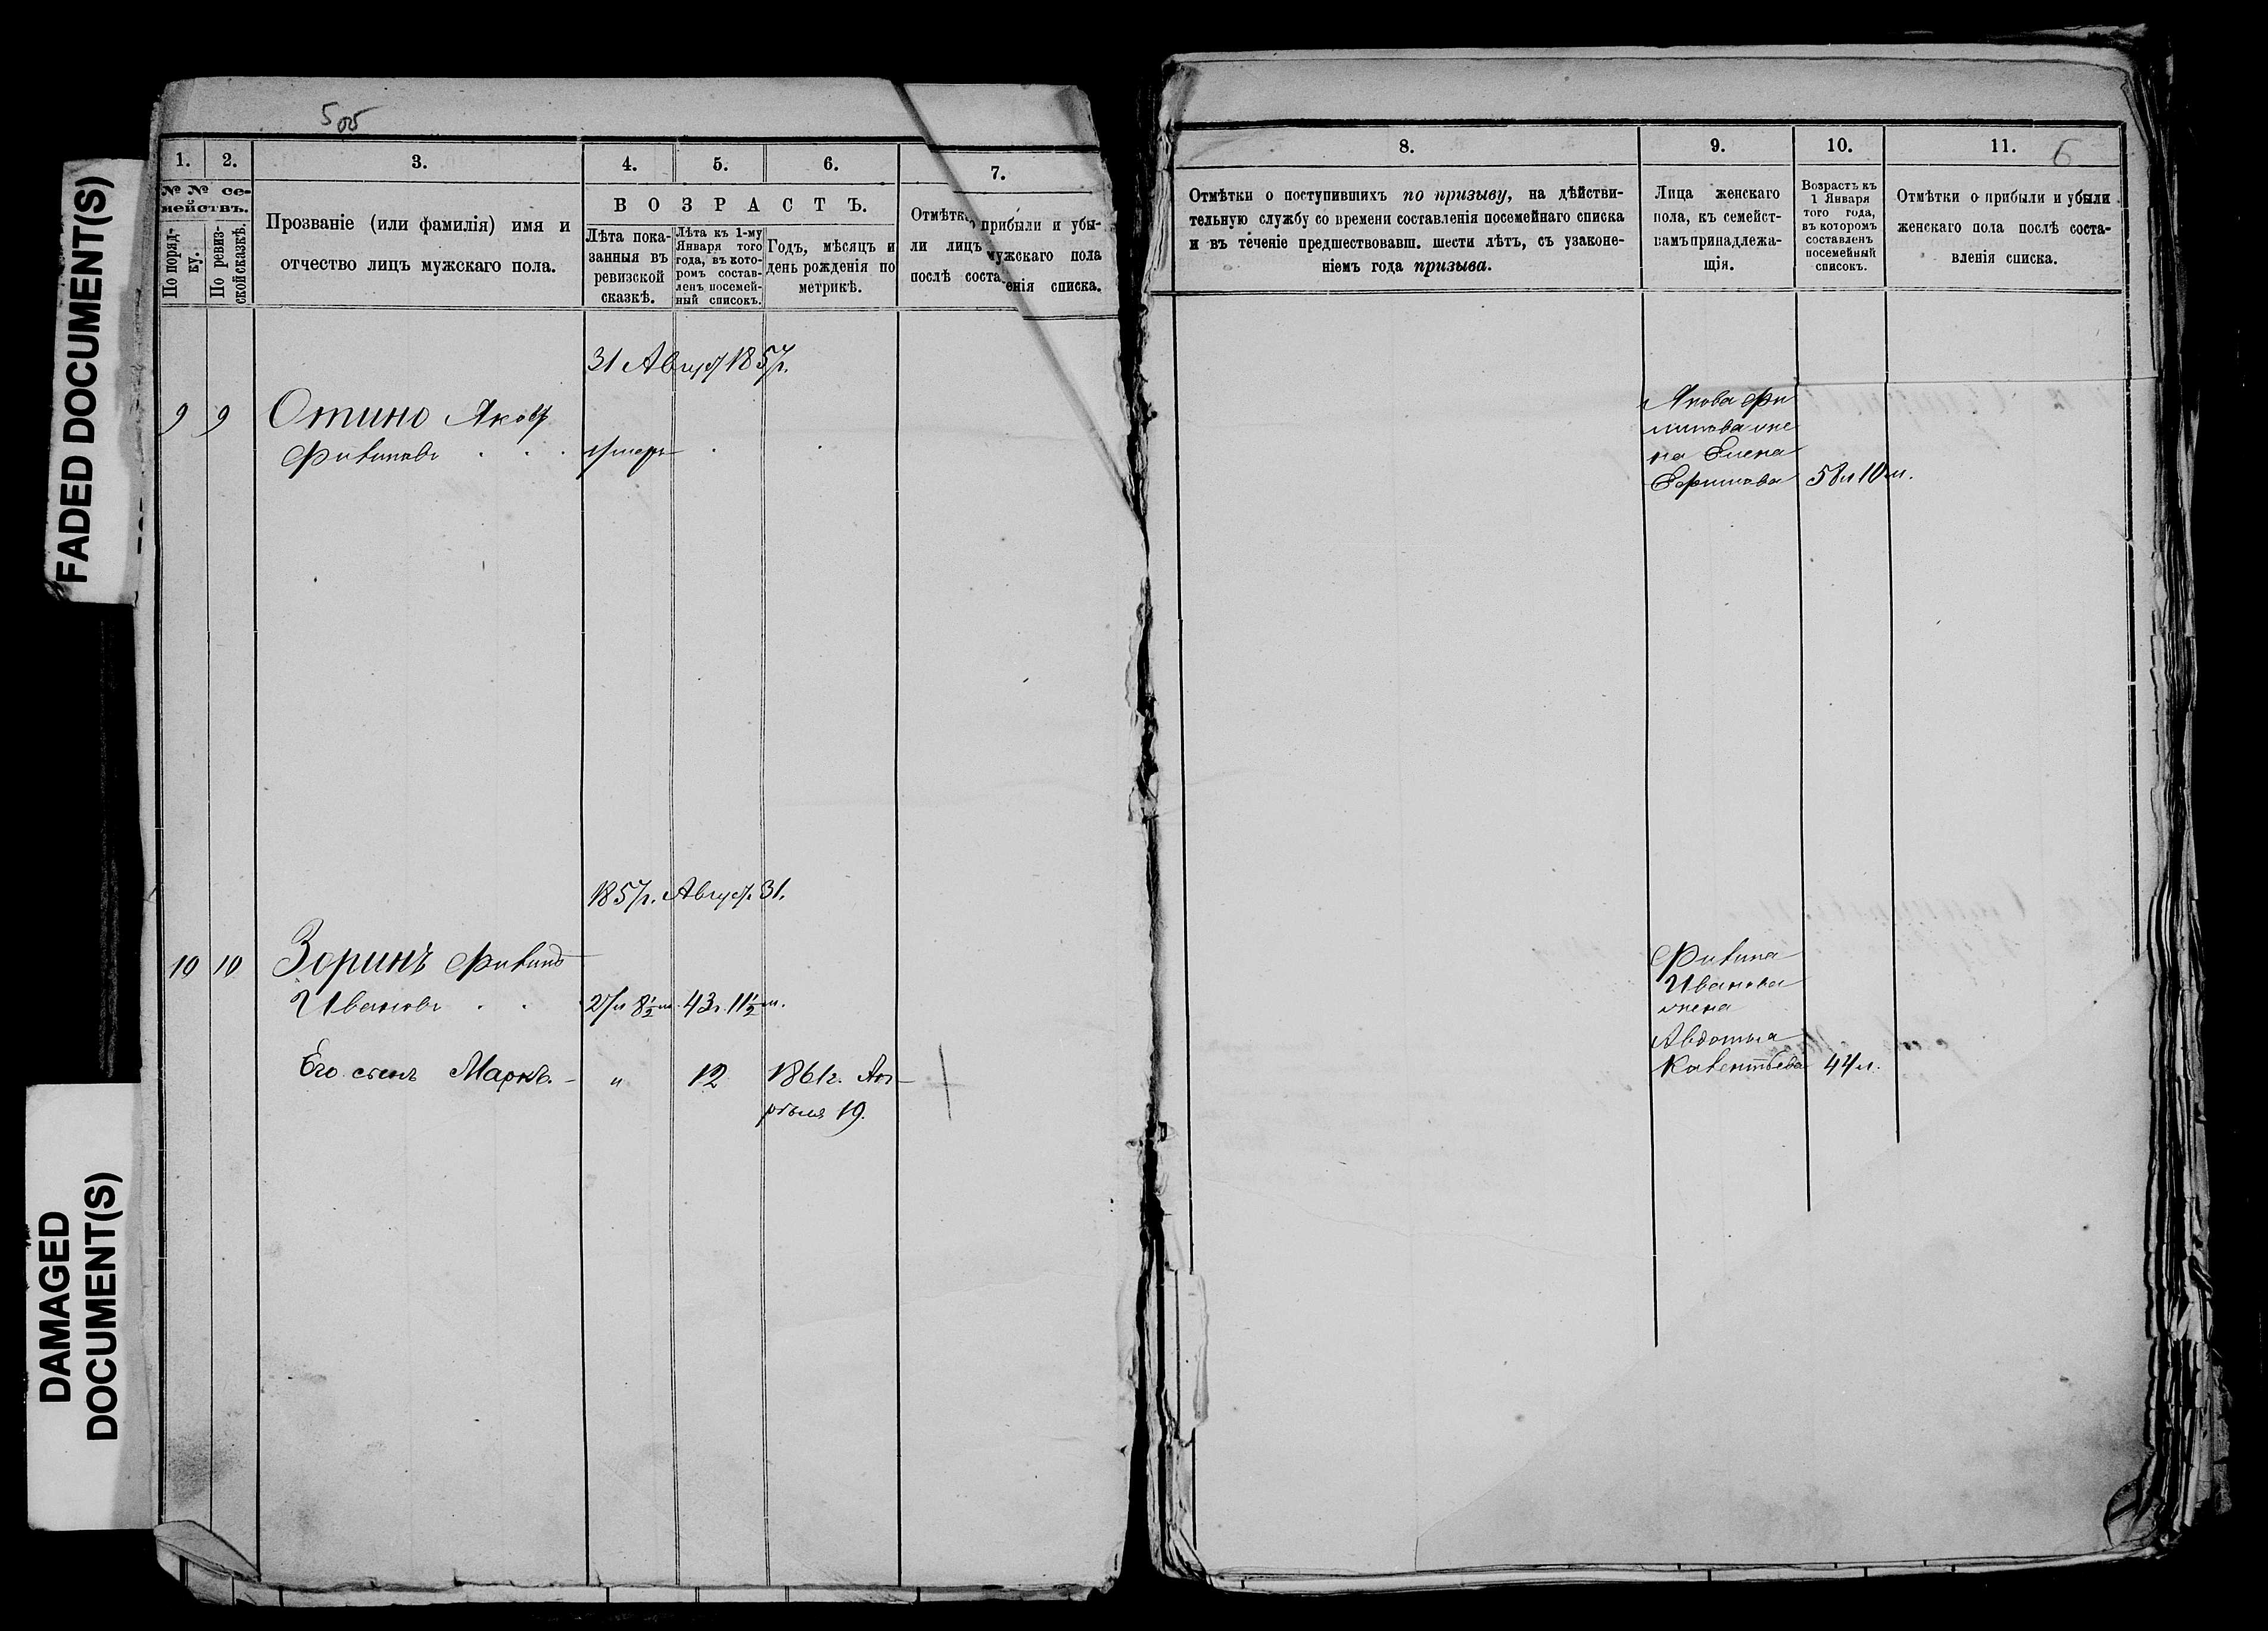 FADED DOCUMENT(S)
DAMAGED
DOCUMENT(S)
5 об
1.
2.
3.
4.
5.
6.
7.
№ № се-
мействъ.
По поряд-
ку.
По ревиз-
ской сказкѣ.
Прозваніе (или фамилія) имя и
отчество лицъ мужскаго пола.
ВОЗРАСТЪ.
Лѣта пока-
занныя въ
ревизской
сказкѣ.
Лѣта къ 1-му
Января того
года, въ кото-
ромъ состав-
ленъ посемей-
ный списокъ.
Годъ, мѣсяцъ и
день рожденія по
метрикѣ.
прибыли и убы-
ли лицъ мужскаго пола
послѣ списка.
31 Август 1857г.
9 9 Отино Яковъ
Филиповъ умеръ
1857г. Август. 31.
10 10 Зоринъ Филипъ
Ивановъ 27л 8½м. 43г. 11½м.
Его сынъ Маркъ. " 12 1861г. Ап-
рѣля 19.
8.
9.
10.
11.
6
Отмѣтки о поступившихъ по призыву, на дѣйстви-
тельную службу со времени составленія посемейнаго списка
и въ теченіе предшествовавш. шести лѣтъ, съ узаконе-
ніемъ года призыва.
Лица женскаго
пола, къ семейст-
вамъ принадлежа-
щія.
Возрастъ къ
1 Января
того года,
въ которомъ
составленъ
посемейный
списокъ.
Отмѣтки о прибыли и убыли
женскаго пола послѣ соста-
вленія списка.
Якова Фи
липова же
на Елена
Ефимова 58л 10м.
Филипа
Иванова
жена
Авдотья
44л.